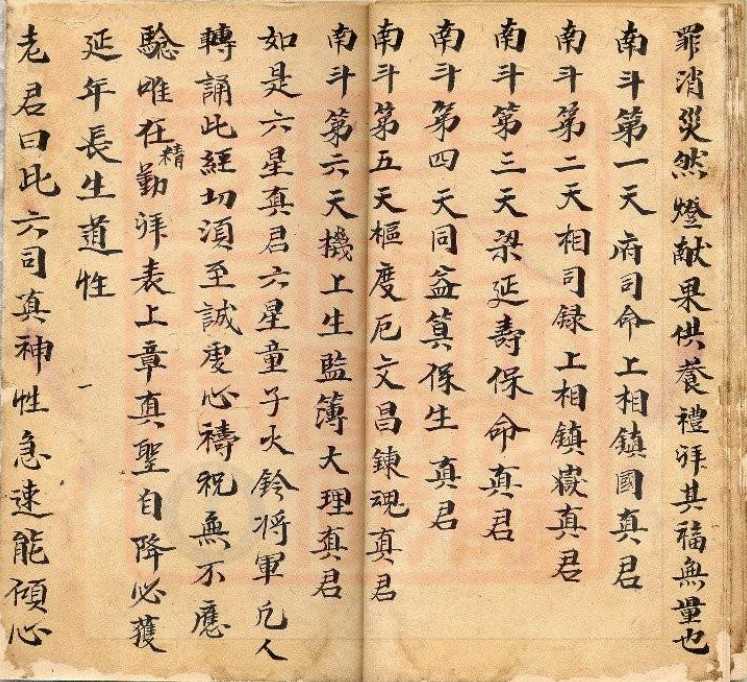 罪消災然燈献果供養禮拜其福無量也
南斗第一天府司命上相鎮國真君
南斗第二天相司録上相鎮嶽真君
南斗第三天梁延壽保命真君
南斗第四天同益筭保生真君
南斗第五天樞度厄文昌錬魂真君
南斗第六天機上生監簿大理真君
如是六星真君六星童子火鈴将軍凡人
轉誦此經切湏至誠虔心禱祝無不應
驗唯在精勤拜表上章真聖自降必獲
延年長生道性
老君曰此六司真神性急速能傾心